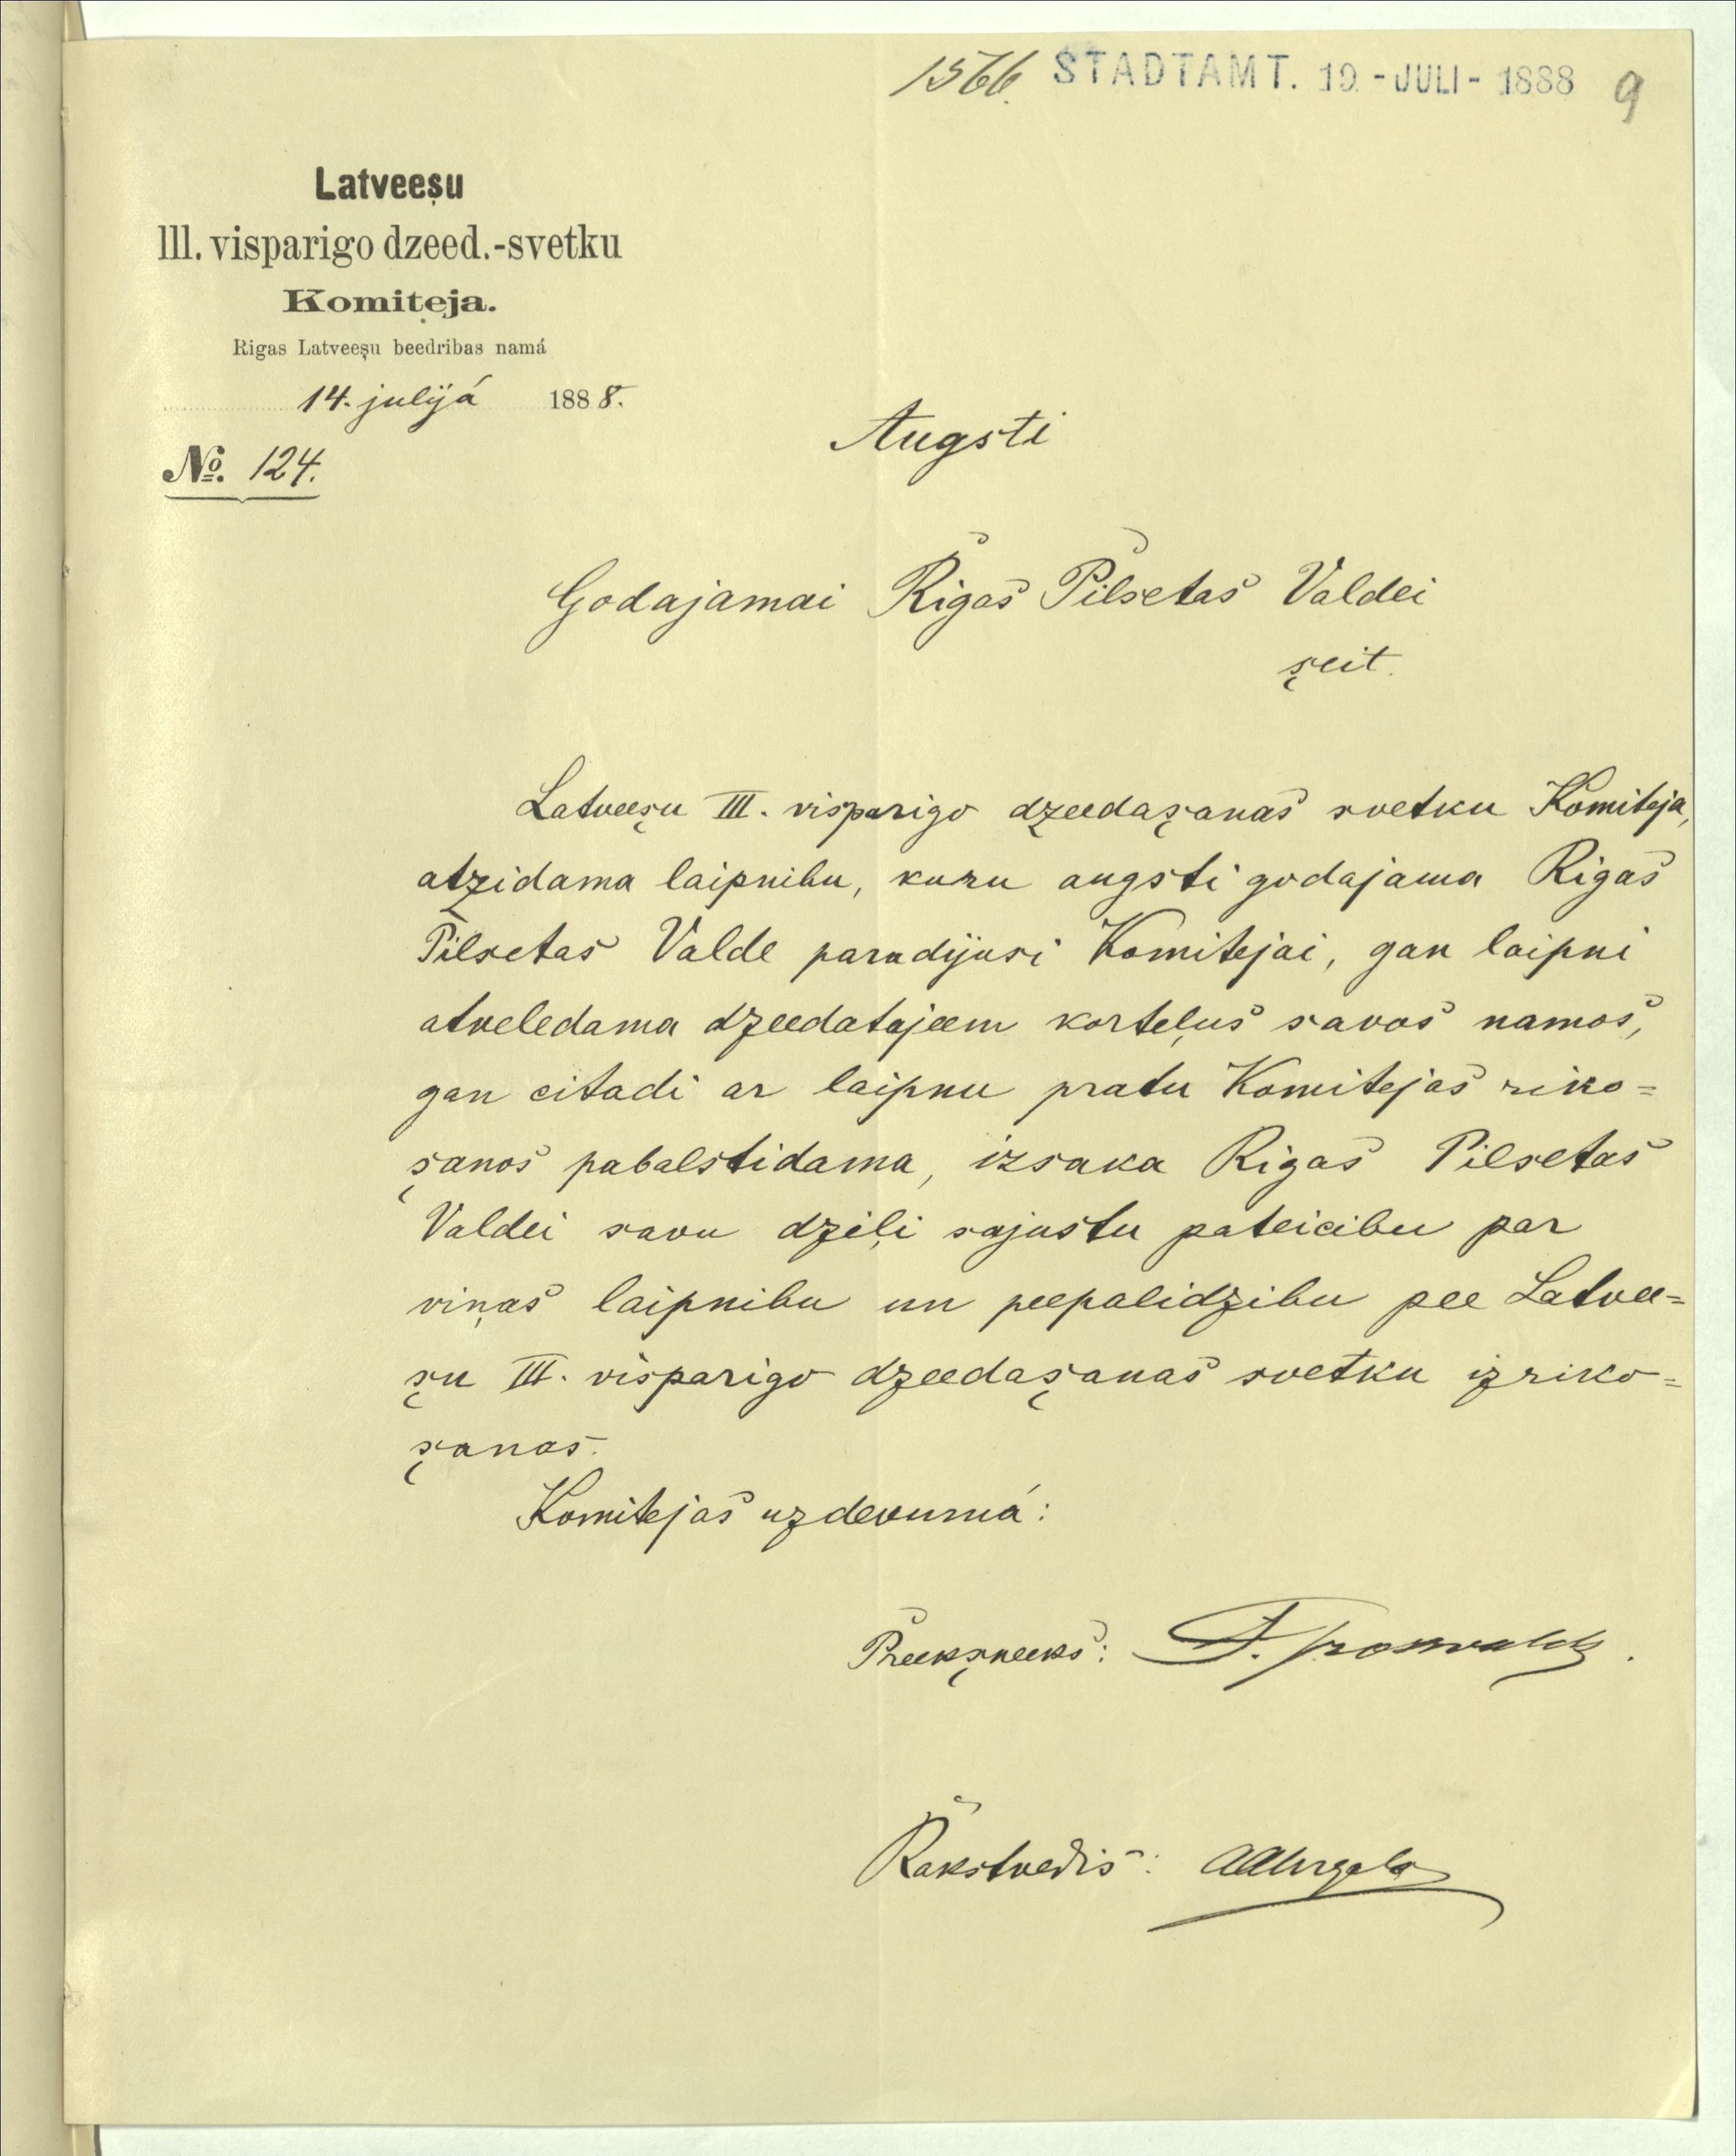 1566. STADTAMT. 19 - JULI - 1888 9
Latveeşu
III. visparigo dzeed.-svetku
Komiteja.
Rigas Latveeşu beedribas namá
14. julijá 1888.
No. 124.
Augsti
Godajamai Rigas Pilsetas Valdei
şeit.
Latveeşu III. visparigo dzeedaşanas svetku Komiteja,
atzidama laipnibu, kuru augsti godajama Rigas
Pilsetas Valde paradijusi Komitejai, gan laipni
atveledama dzeedatajeem korteļus savos namos,
gan citadi ar laipnu pratu Komitejas riko=
şanos pabalstidama, izsaka Rigas Pilsetas
Valdei savu dziļi sajustu pateicibu par
viņas laipnibu un peepalidzibu pee Latvee=
şu III. visparigo dzeedaşanas svetku izriko=
şanas.
Komitejas uzdevumá:
Preekşneeks: F. Grosswalds.
Rakstvedis: